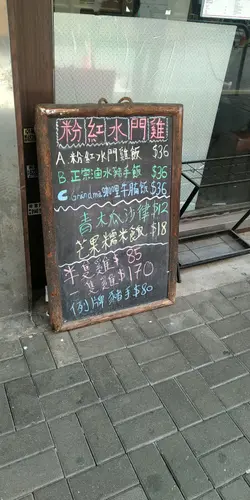 粉紅水門雞
A. 粉紅水門雞飯 $36
B. 正宗滷水豬手飯 $36
C Grandma咖喱牛腩飯 $36
青木瓜沙律 $12
芒果糯米飯 $18
半隻雞 $85
隻雞 $170
例牌豬手 $80